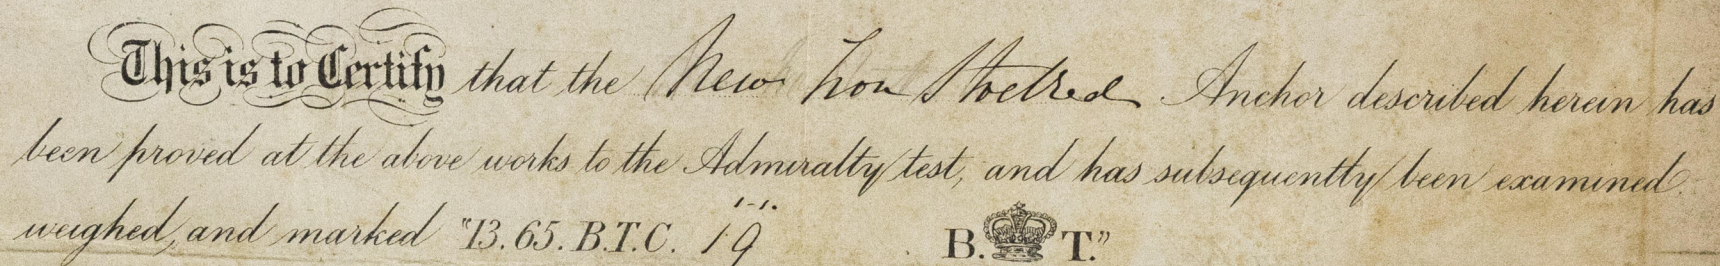 This is to Certify that the New Iron Stocked Anchor described herein has
been proved at the above works to the Admiralty test, and has subsequently been examined
weighed, and marked "13.65. B.T.C. 19 B. T."